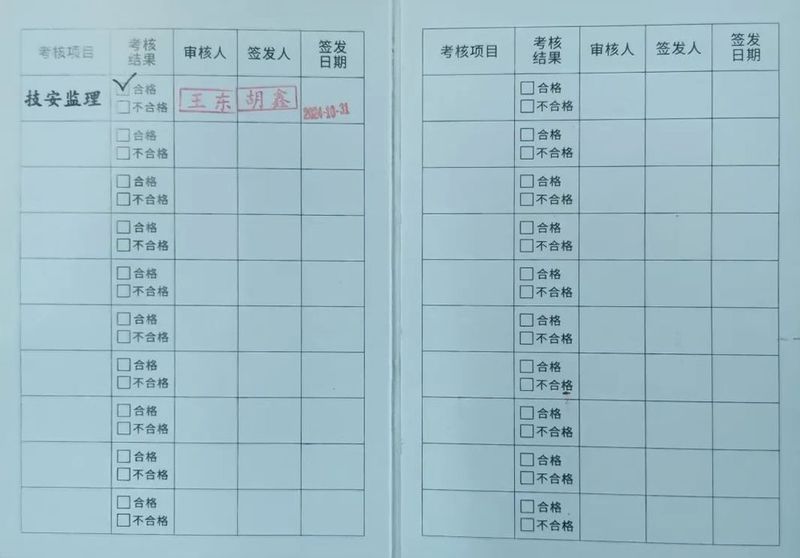 考核项目 考核结果 审核人 签发人 签发日期
技安监理 ☑合格 王东 胡鑫 2024-10-31
□不合格
□合格
□不合格
□合格
□不合格
□合格
□不合格
□合格
□不合格
□合格
□不合格
□合格
□不合格
□合格
□不合格
□合格
□不合格
□合格
□不合格
考核项目 考核结果 审核人 签发人 签发日期
□合格
□不合格
□合格
□不合格
□合格
□不合格
□合格
□不合格
□合格
□不合格
□合格
□不合格
□合格
□不合格
□合格
□不合格
□合格
□不合格
□合格
□不合格